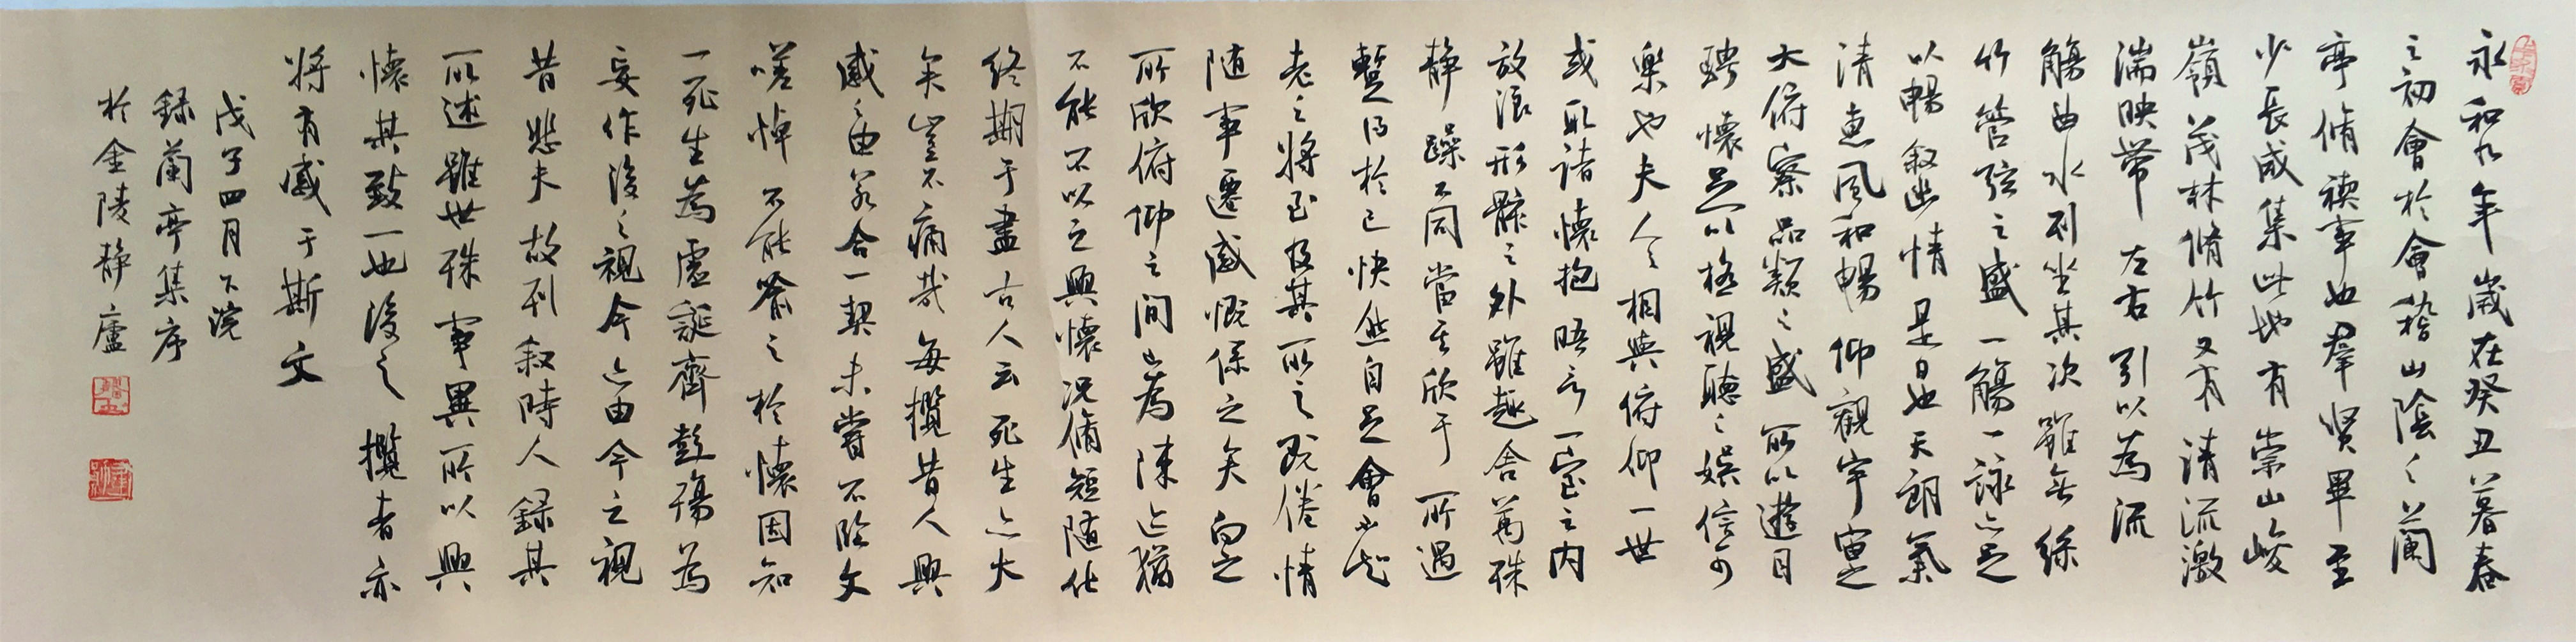 永和九年歲在癸丑暮春
之初會於會稽山陰之蘭
亭脩禊事也羣賢畢至
少長咸集此地有崇山峻
嶺茂林脩竹又有清流激
湍映帶左右引以為流
觴曲水列坐其次雖無絲
竹管弦之盛一觴一詠亦足
以暢敘幽情是日也天朗氣
清惠風和暢仰觀宇宙之
大俯察品類之盛所以遊目
騁懷足以極視聽之娛信可
樂也夫人之相與俯仰一世
或取諸懷抱晤言一室之內
放浪形骸之外雖趣舍萬殊
静躁不同當其欣于所遇
暫得於己快然自足曾不知
老之將至及其所之既倦情
随事遷感慨係之矣向之
所欣俯仰之間以為陳迹猶
不能不以之興懷況脩短随化
終期于盡古人云死生亦大
矣豈不痛哉每攬昔人興
感之由若合一契未嘗不臨文
嗟悼不能喻之於懷固知
一死生為虛誕齊彭殤為
妄作後之視今亦由今之視
昔悲夫故列叙時人錄其
所述雖世殊事異所以興
懷其致一也後之攬者亦
將有感于斯文
戊子四月下浣
錄蘭亭集序
於金陵静廬